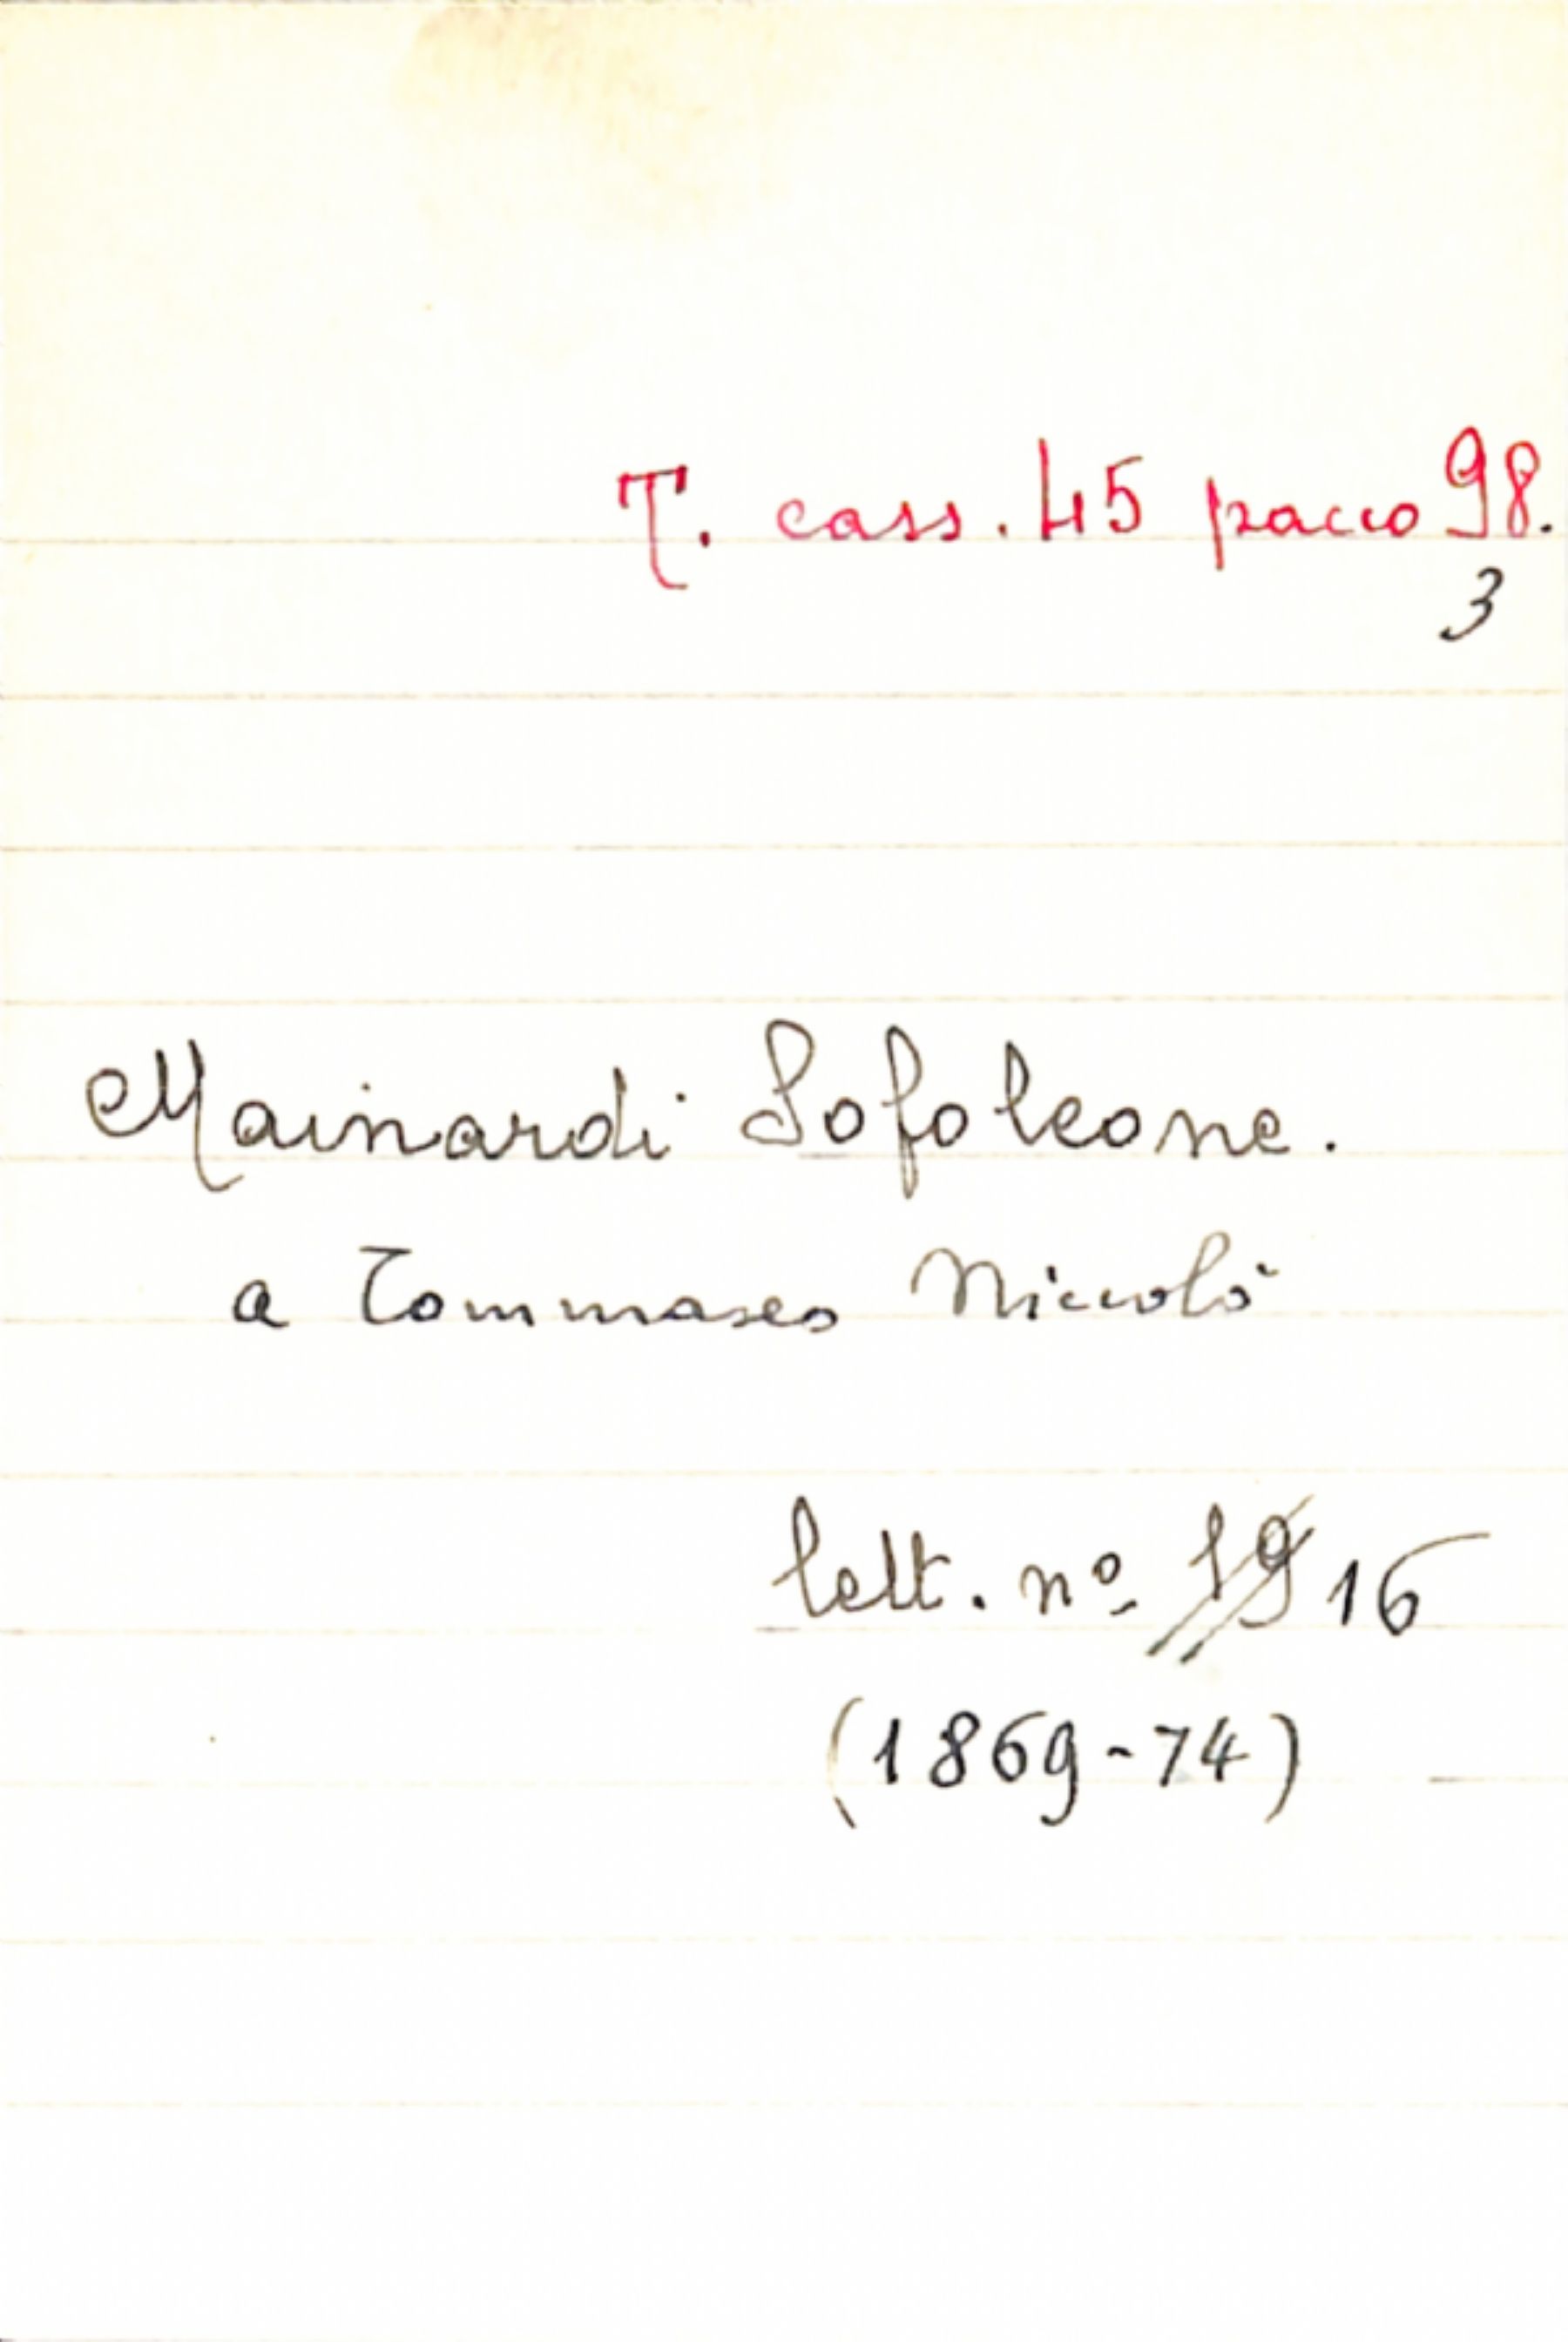 T. cass. 45 pacco 98.
3
Mainardi Sofoleone.
a Tommaseo Niccolò
lett. nº 19 16
(1869-74)